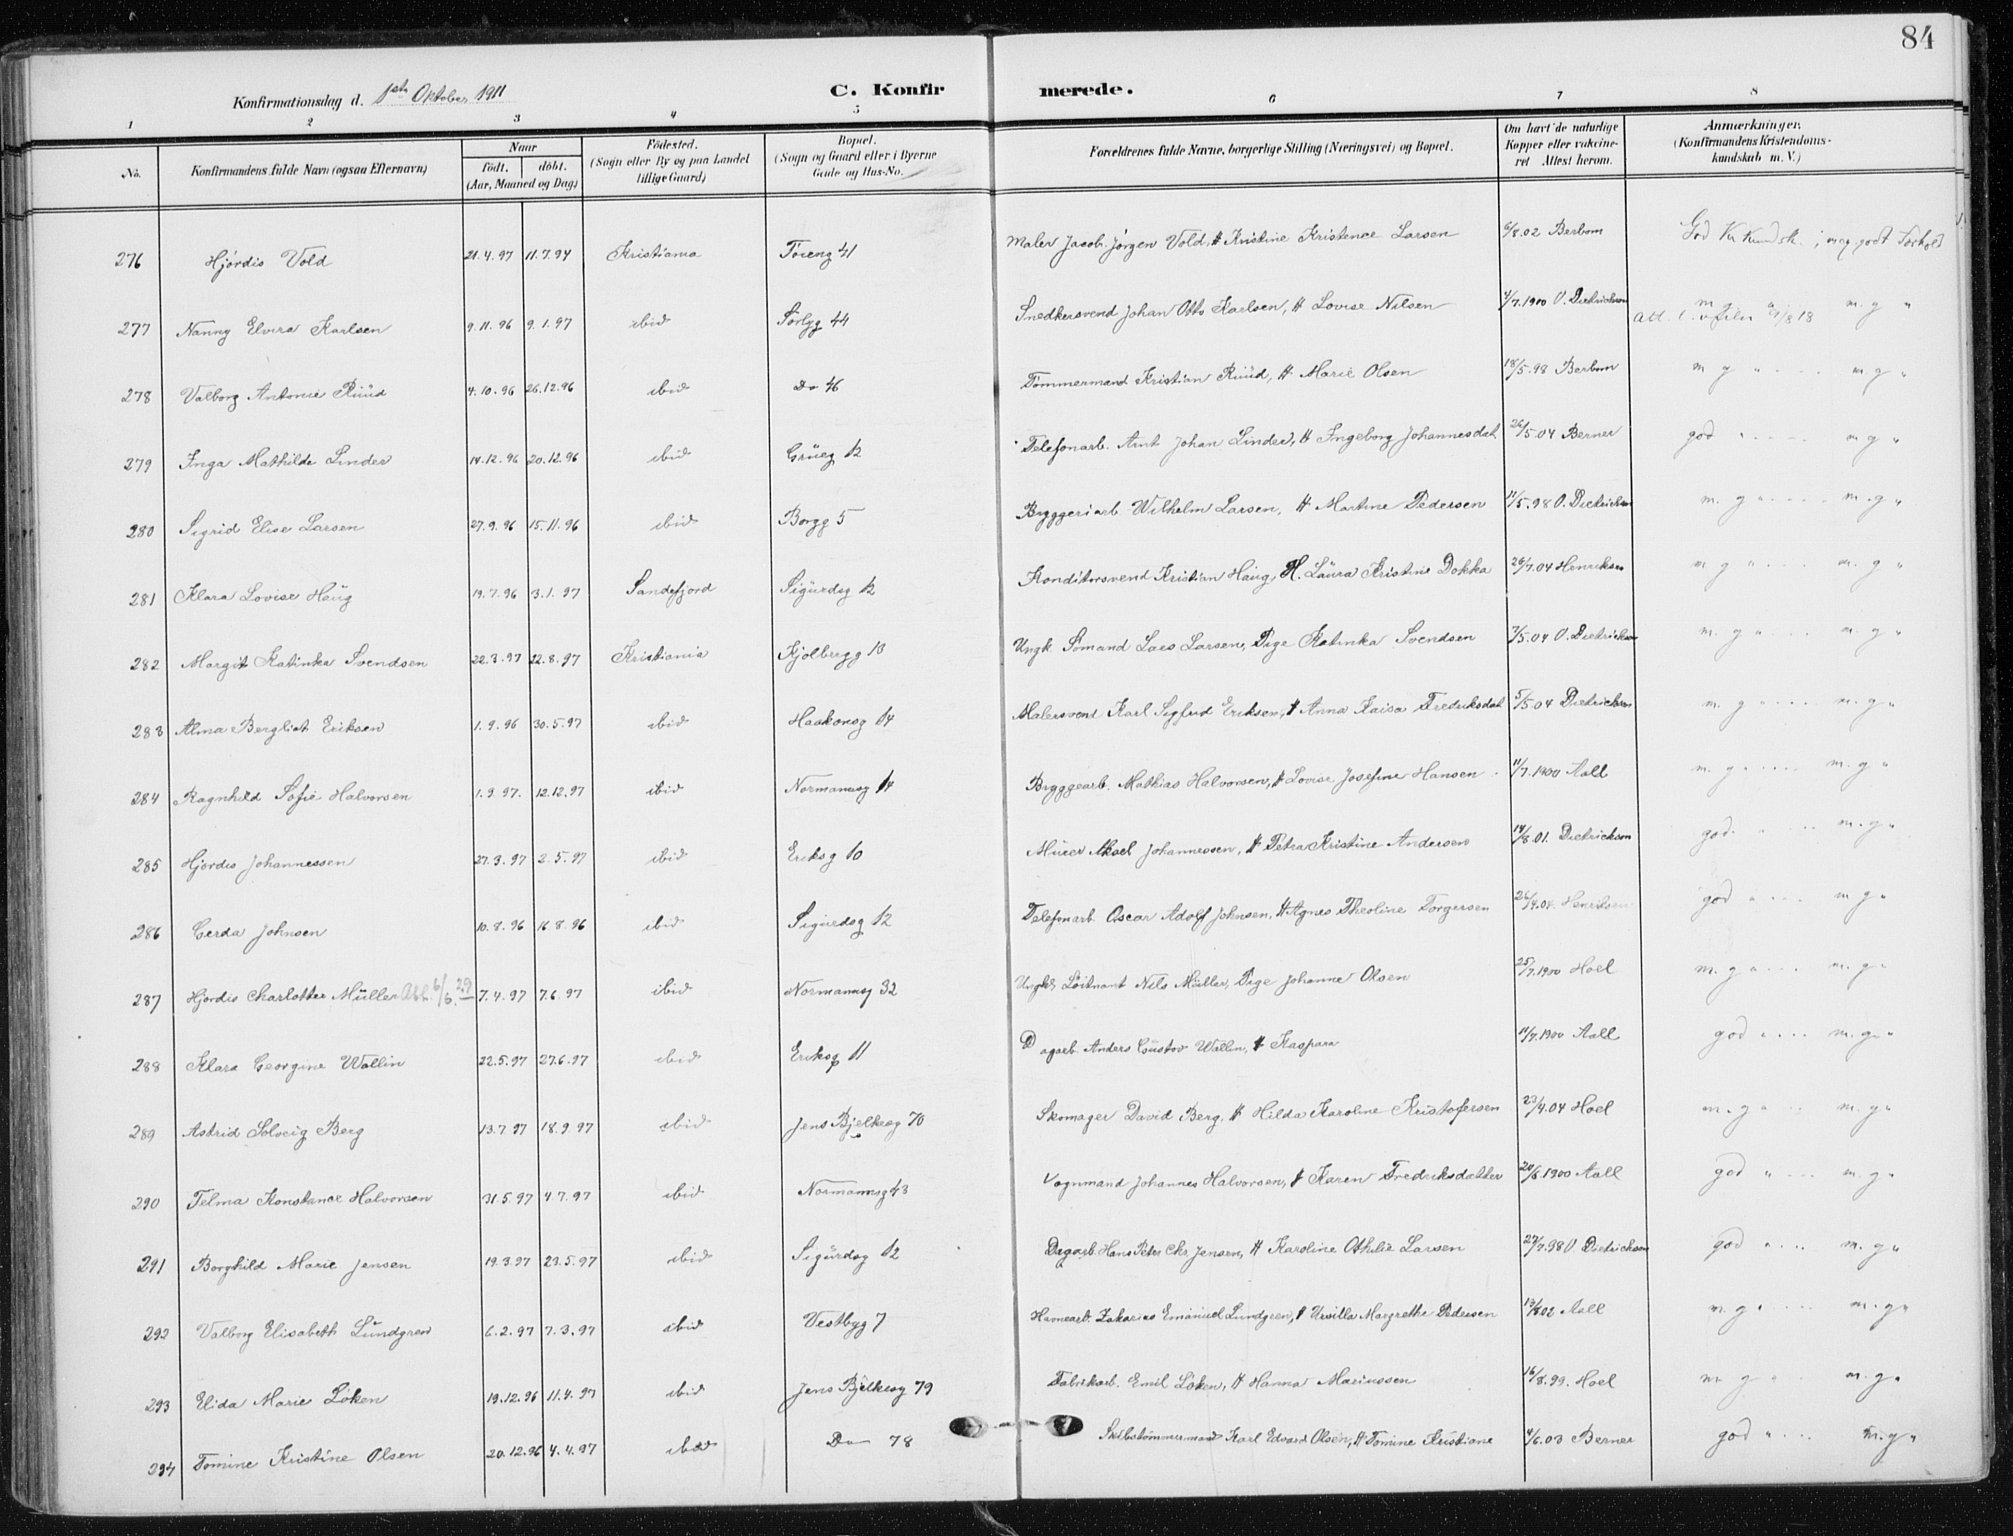 84
Konfirmationsdag d. 1ste Oktober 1911 C. Konfirmerede.
1 2 3 4 5 6 7 8
No. Konfirmandens fulde Navn (ogsaa Efternavn) Naar födt. döbt. (Aar, Maaned og Dag) Födested. (Sogn eller By og paa Landet tillige Gaard) Bopæl. (Sogn og Gaard eller i Byerne Gade og Hus-No. Forældrenes fulde Navne, borgerlige Stilling (Næringsvei) og Bopæl. Om havt de naturlige Kopper eller vaccineret Attest herom. Anmærkninger. (Konfirmandens Kristendomskundskab m. V.)
276 Hjördis Vold 21.4.97 11.7.97 Kristiania Töieng 41 Maler Jacob Jörgen Vold, H Kristine Kristence Larsen 6/8.02 Berbom God Kr. Kundsk. ; meg. godt Forhold
277 Nanny Elvira Karlsen 9.11.96 9.1.97 ibid Sörlyg 44 Snedkersvend Johan Otto Karlsen, H Lovise Nilsen 4/7.1900 O. Dietrichson m g " m g "
278 Valborg Antonie Ruud 4.10.96 26.12.96 ibid Do 46 Tömmermand Kristian Ruud, H Marie Olsen 18/5.98 Berbom m g " m g "
279 Inga Mathilde Linder 14.12.96 20.12.96 ibid Grüeg 12 Telefonarb. Arnt Johan Linder, H Ingeborg Johannesdat 26/5.04 Berner god " m g "
280 Sigrid Elise Larsen 27.9.96 15.11.96 ibid Borgg 5 Bryggeriarb Wilhelm Larsen, H Martine Pedersen 11/5.98 O. Dietrichson m. g " m. g "
281 Klara Lovise Haug 19.7.96 3.1.97 Sandefjord Sigurdsg 12 Konditorsvend Kristian Haug, H. Laura Kristine Dokka 26/7.04 Henriksen m g " m. g "
282 Margit Katinka Svendsen 22.3.97 22.8.97 Kristiania Kjölbergg 13 Ungk Sömand Laes Larsen, Pige Katinka Svendsen 7/5.04 O. Dietrichson m. g " m. g "
283 Alma Bergliot Eriksen 1.9.96 30.5.97 ibid Haakonsg 14 Malersvend Karl Sigfrid Eriksen, H Anna Kaisa Fredriksdat 5/5.04 Dietrichson m. g " m. g "
284 Ragnhild Sofie Halvorsen 1.9.97. 12.12.97 ibid Normannsg 14 Bryggearb. Mathias Halvorsen, H Lovise Josefine Hansen 11/7.1900 Aall m. g " m. g "
285 Hjördis Johannessen 27.3.97 2.5.97 ibid Eriksg 10 Murer Aksel Johannessen, H Petra Kristine Andersen 14/8.01. Dietrichson god. " m. g "
286 Gerda Johnsen 10.8.96 16.8.96 ibid Sigurdsg 12 Telefonarb Oscar Adolf Johnsen, H Agnes Theoline Torgersen 26/4.04. Henriksen god " m g "
287 Hjördis Charlotte Müller Att. 6/6. 29 7.4.97 7.6.97 ibid Normannsg 32 Ungk. Löitnant Nils Müller, Pige Johanne Olsen 25/7.1900 Hoel m. g " m. g "
288 Klara Georgine Wallin 22.5.97 27.6.97 ibid Eriksg 11 Dagarb. Anders Gustav Wallin, H Kaspara 11/7.1900 Aall god " m. g "
289 Astrid Solveig Berg 13.7.97 18.9.97 ibid Jens Bjelkesg 70 Skomager David Berg, H Hilda Karoline Kristofersen 23/4.04 Hoel m. g " m. g "
290 Telma Konstance Halvorsen 31.5.97 4.7.97 ibid Normannsg 43 Vognmand Johannes Halvorsen, H Karen Fredriksdatter 20/6.1900 Aall god " m. g "
291 Borghild Marie Jensen 19.3.97 23.5.97 ibid Sigurdsg 12 Dagarb. Hans Peter Chr. Jensen, H Karoline Othilie Larsen 27/7.98 O Dietrichson god " m. g "
292 Valborg Elisabeth Lundgren 6.2.97 7.3.97 ibid Vestbyg 7 Havnearb. Zakarias Emanuel Lundgren, H Ursilla Margrethe Pedersen 13/8.02 Aall m. g " m. g "
293 Elida Marie Löken 19.12.96 11.4.97 ibid Jens Bjelkesg 79 Fabrikarb. Emil Löken, H Hanna Mariussen 16/8.99. Hoel m g " m. g "
294 Tomine Kristine Olsen 20.12.96 4.4.97 ibid Do 78 Skibstömmermand Karl Edvard Olsen, H Tomine Kristiane 4/6.03 Berner god " m. g "